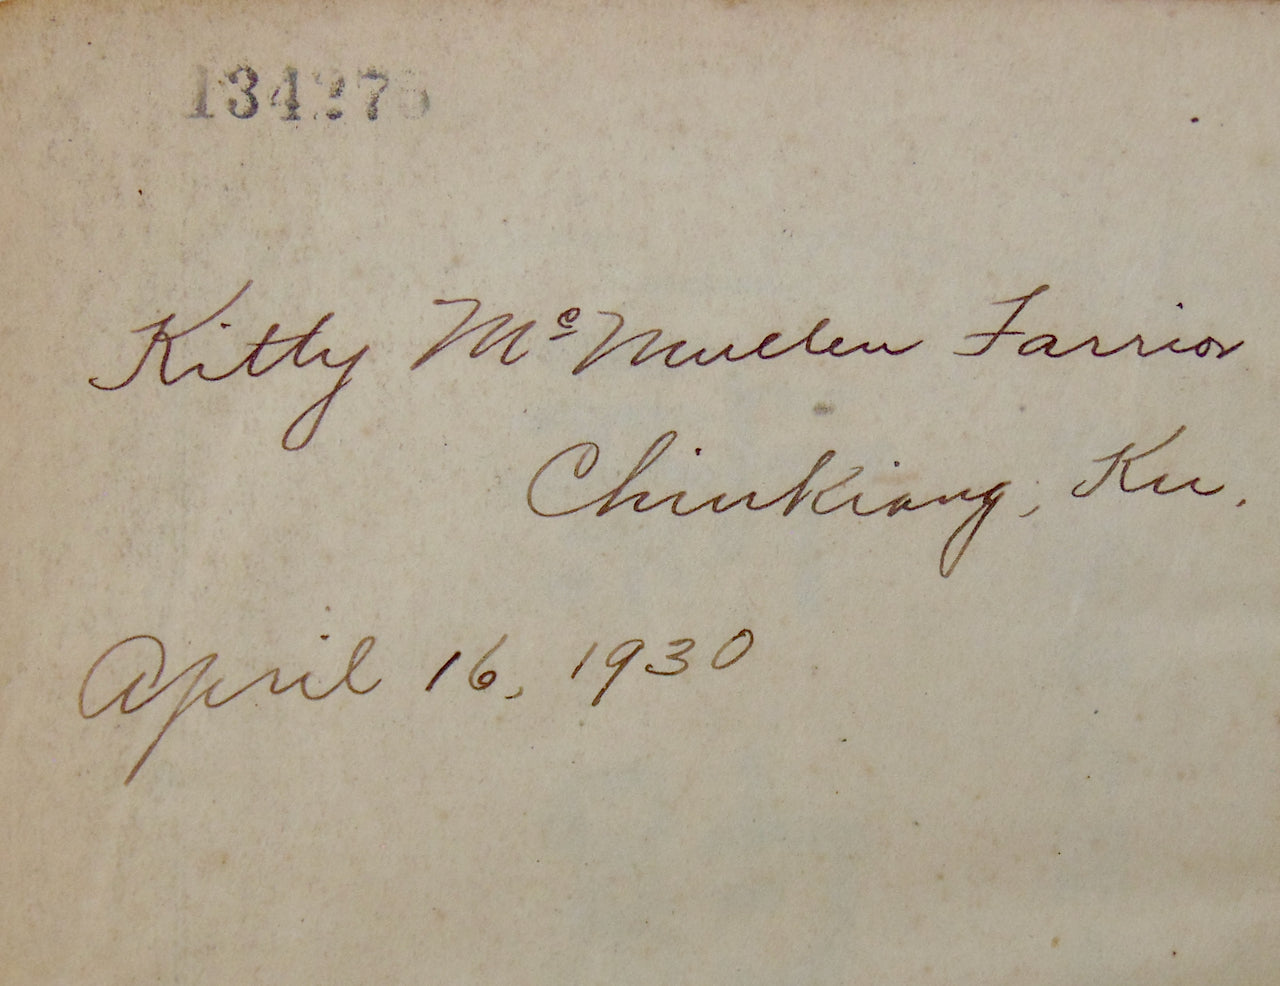 134275
Kitty McMullen Farrior
Chinkiang, Ku.
April 16, 1930